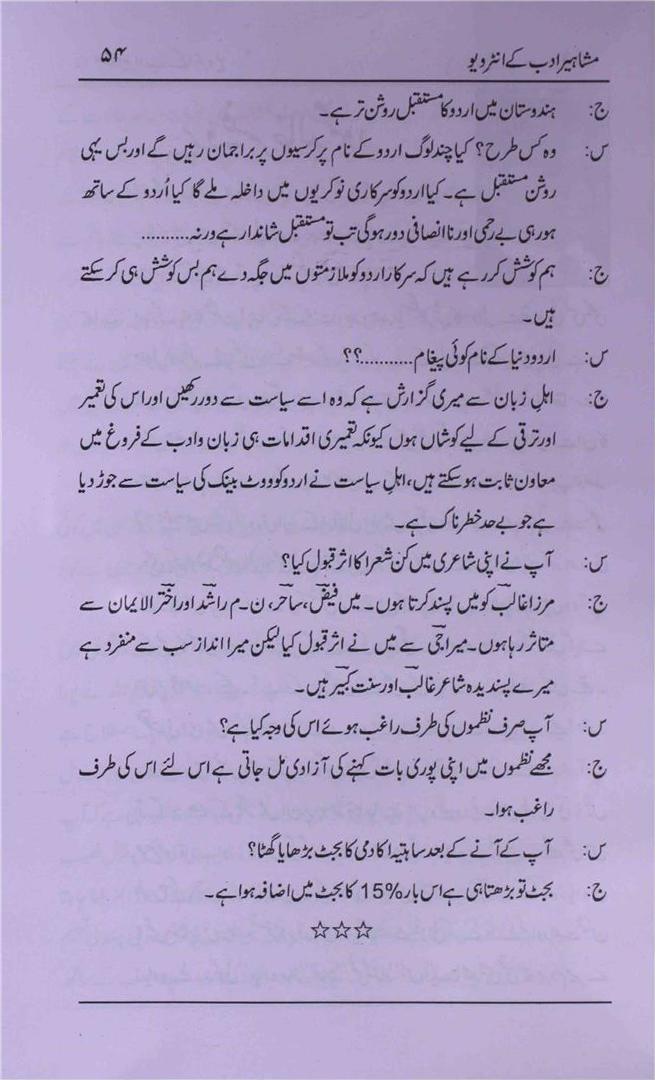 مشاہیر ادب کے انٹرویو ۵۴
ج: ہندوستان میں اردو کا مستقبل روشن تر ہے۔
س: وہ کس طرح؟ کیا چند لوگ اردو کے نام پر کرسیوں پر براجمان رہیں گے اور بس یہی
روشن مستقبل ہے۔ کیا اردو کو سرکاری نوکریوں میں داخلہ ملے گا کیا اُردو کے ساتھ
ہورہی بے رحمی اور نا انصافی دور ہوگی تب تو مستقبل شاندار ہے ورنہ..........
ج: ہم کوشش کررہے ہیں کہ سرکار اردو کو ملازمتوں میں جگہ دے ہم بس کوشش ہی کرسکتے
ہیں۔
س: اردو دنیا کے نام کوئی پیغام..........؟؟
ج: اہلِ زبان سے میری گزارش ہے کہ وہ اسے سیاست سے دور رکھیں اور اس کی تعمیر
اور ترقی کے لیے کوشاں ہوں کیونکہ تعمیری اقدامات ہی زبان و ادب کے فروغ میں
معاون ثابت ہوسکتے ہیں، اہلِ سیاست نے اردو کو ووٹ بینک کی سیاست سے جوڑ دیا
ہے جو بے حد خطرناک ہے۔
س: آپ نے اپنی شاعری میں کن شعرا کا اثر قبول کیا؟
ج: مرزا غالبؔ کو میں پسند کرتا ہوں۔ میں فیضؔ، ساحرؔ، ن۔م راشدؔ اور اخترؔ الایمان سے
متاثر رہا ہوں۔ میرا جیؔ سے میں نے اثر قبول کیا لیکن میرا انداز سب سے منفرد ہے
میرے پسندیدہ شاعر غالبؔ اور سنت کبیرؔ ہیں۔
س: آپ صرف نظموں کی طرف راغب ہوئے اس کی وجہ کیا ہے؟
ج: مجھے نظموں میں اپنی پوری بات کہنے کی آزادی مل جاتی ہے اس لئے اس کی طرف
راغب ہوا۔
س: آپ کے آنے کے بعد ساہتیہ اکادمی کا بجٹ بڑھا یا گھٹا؟
ج: بجٹ تو بڑھتا ہی ہے اس بار 15% کا بجٹ میں اضافہ ہوا ہے۔
☆☆☆